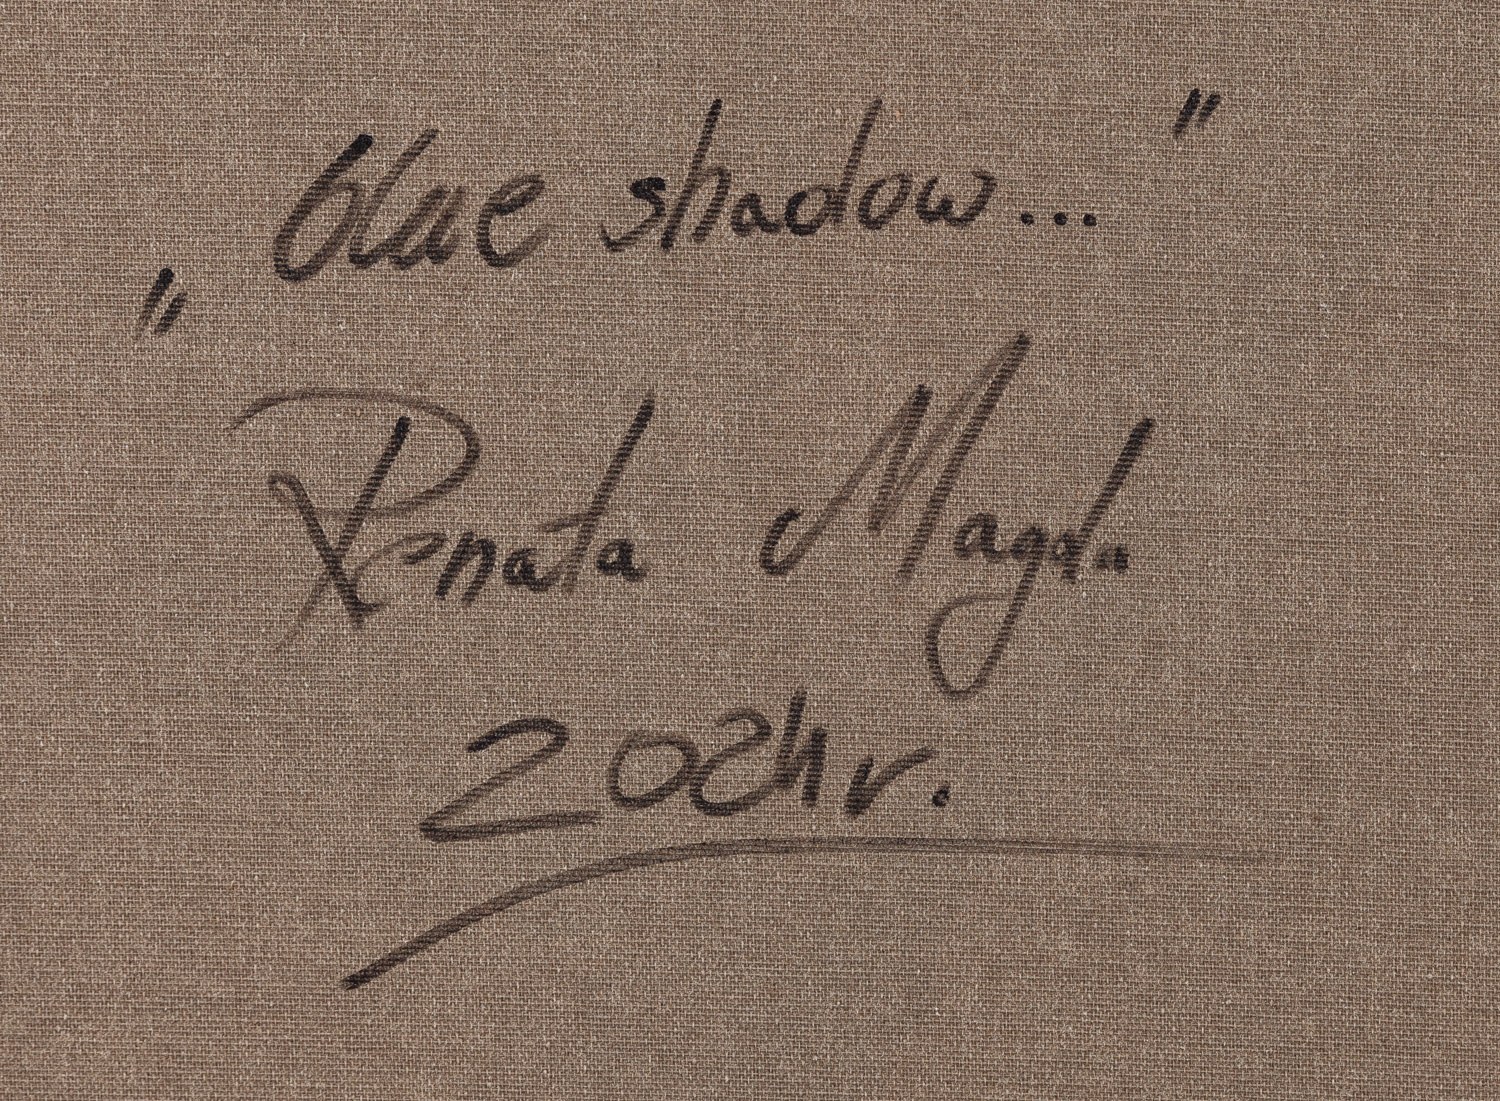 „blue shadow..."
Renata Magda
2024r.